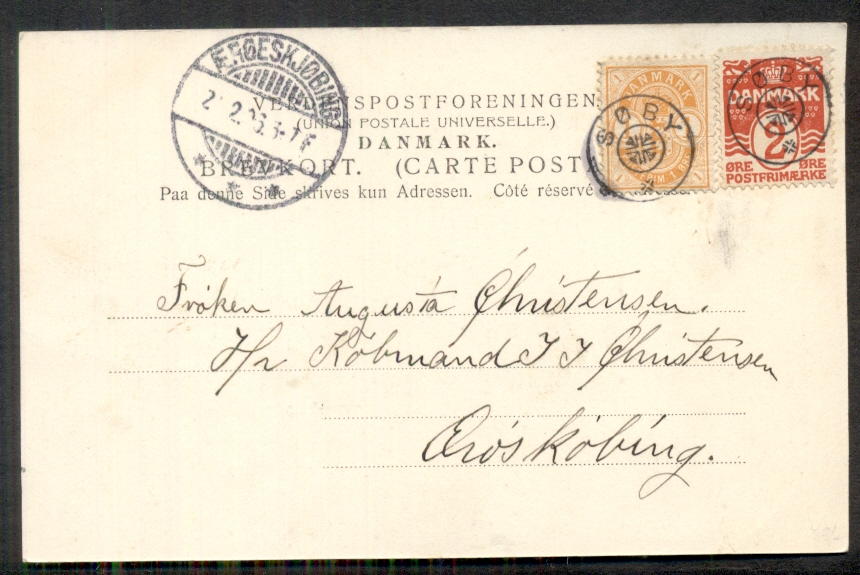 ÆRØESKJØBING
VERDENSPOSTFORENINGEN
(UNION POSTALE UNIVERSELLE.)
DANMARK.
BREVKORT. (CARTE POST
Paa denne Side skrives kun Adressen. Côté réservé
1 DANMARK 1
SØBY
DANMARK
2
ØRE ØRE
POSTFRIMÆRKE
SØBY
Fröken Augusta Christensen.
H/r Köbmand J J Christensen
Æröskóbing.